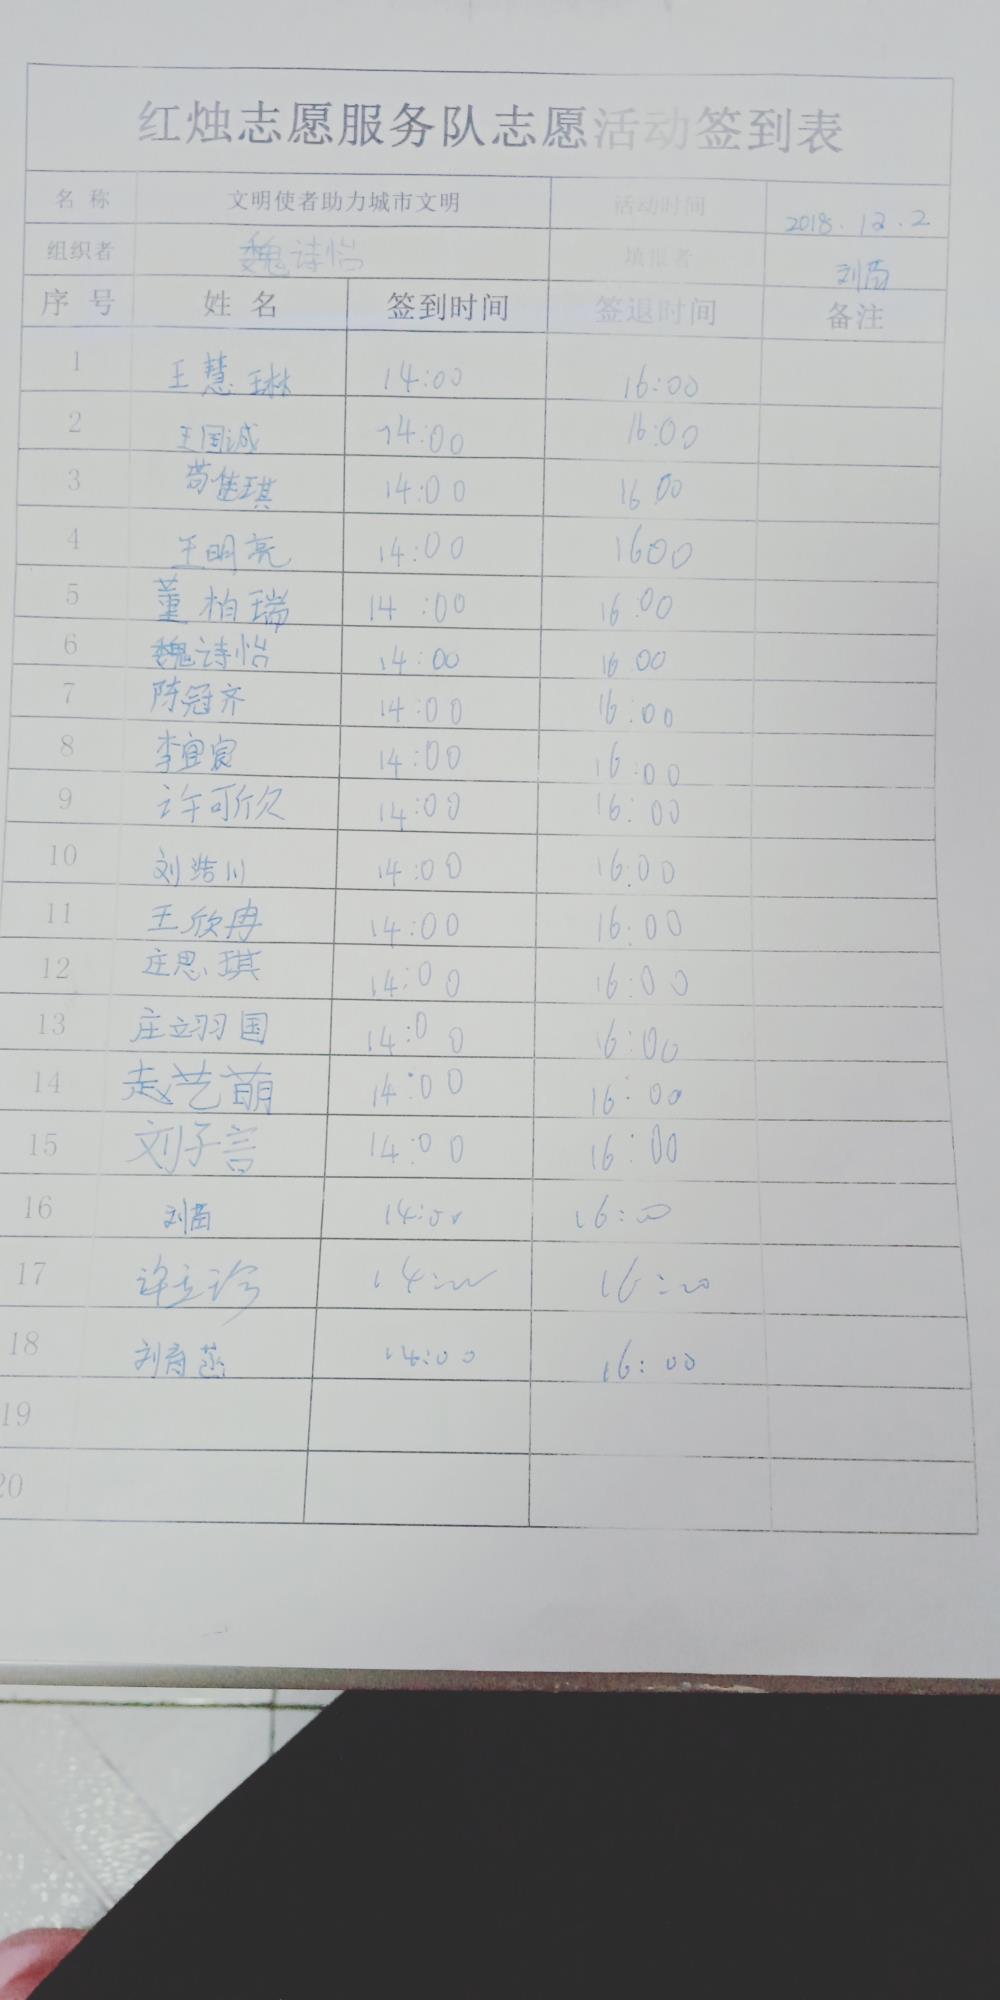 红烛志愿服务队志愿活动签到表
名 称 文明使者助力城市文明 活动时间 2018.12.2
组织者 魏诗怡 填报者 刘苗
序 号 姓 名 签到时间 签退时间 备注
1 王慧琳 14:00 16:00
2 王国诚 14:00 16:00
3 苟佳琪 14:00 16 00
4 王明亮 14:00 1600
5 董柏瑞 14:00 16:00
6 魏诗怡 14:00 16 00
7 陈冠齐 14:00 16:00
8 李宜宸 14:00 16:00
9 许可欣 14:00 16:00
10 刘浩川 14:00 16:00
11 王欣冉 14:00 16:00
12 庄思琪 14:00 16:00
13 庄翊国 14:00 16:00
14 赵艺萌 14:00 16:00
15 刘子言 14:00 16:00
16 刘苗 14:00 16:00
17 14:00 16:00
18 刘育菡 14:00 16:00
19
20